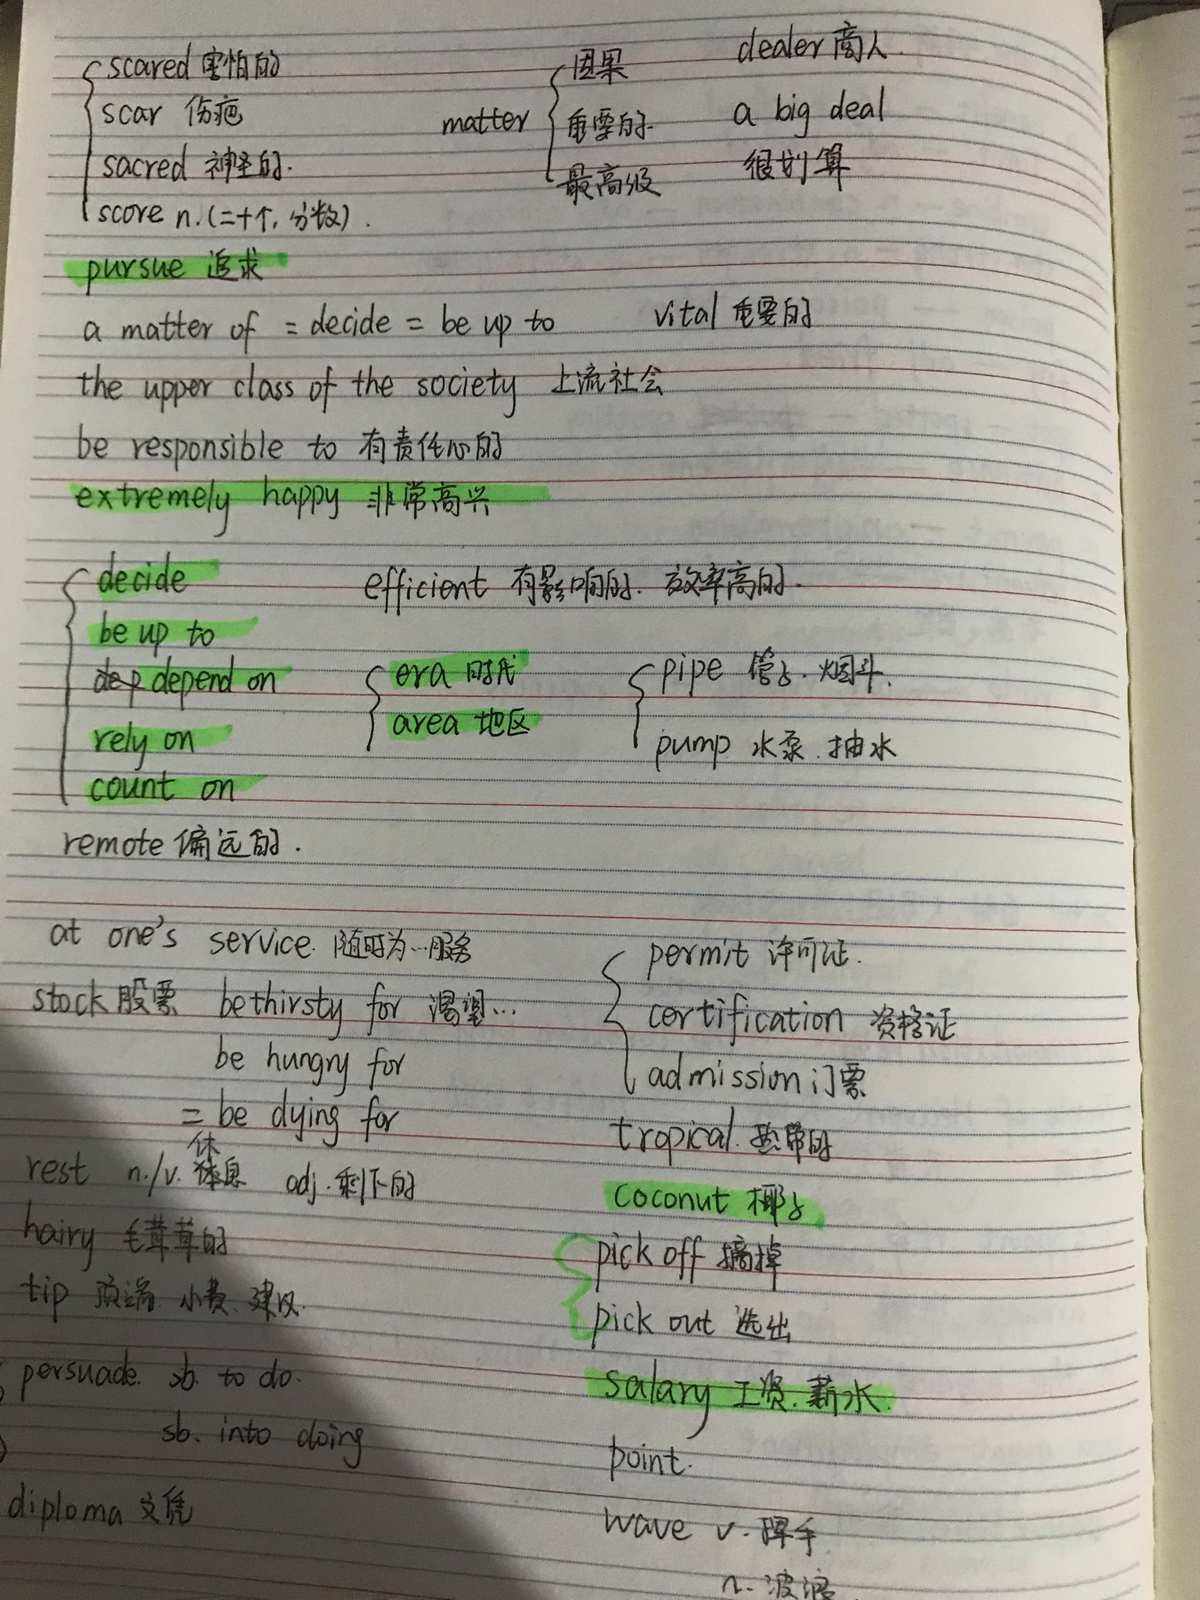 scared 害怕的
scar 伤疤
sacred 神圣的.
score n.(二十个,分数).
matter
因果
重要的
最高级
dealer 商人.
a big deal
很划算
pursue 追求
a matter of = decide = be up to
vital 重要的
the upper class of the society 上流社会
be responsible to 有责任心的
extremely happy 非常高兴
decide
be up to
depend on
rely on
count on
efficient 有影响的. 效率高的.
era 时代
area 地区
pipe 管子. 烟斗.
pump 水泵.抽水
remote 偏远的.
at one's service. 随时为…服务
stock 股票
be thirsty for 渴望…
be hungry for
= be dying for
rest n./v. 休息 adj.剩下的
hairy 毛茸茸的
tip 顶端. 小费. 建议.
persuade. sb. to do.
sb. into doing
diploma 文凭
permit 许可证.
certification 资格证
admission 门票
tropical. 热带的
coconut 椰子
pick off 摘掉
pick out 选出
salary 工资.薪水.
point.
wave v. 挥手
n. 波浪